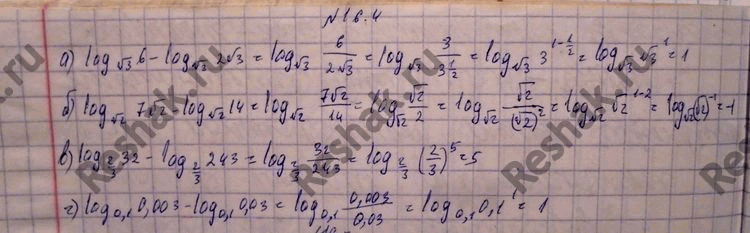 №16.4
а) log_√3 6 - log_√3 2√3 = log_√3 6/(2√3) = log_√3 3/3^(1/2) = log_√3 3^(1-1/2) = log_√3 √3^1 = 1
б) log_√2 7√2 - log_√2 14 = log_√2 (7√2)/14 = log_√2 √2/2 = log_√2 √2/(√2)^2 = log_√2 √2^(1-2) = log_√2 (√2)^(-1) = -1
в) log_(2/3) 32 - log_(2/3) 243 = log_(2/3) 32/243 = log_(2/3) (2/3)^5 = 5
г) log_0,1 0,003 - log_0,1 0,03 = log_0,1 0,003/0,03 = log_0,1 0,1^1 = 1
Reshak.ru
Reshak.ru
Reshak.ru